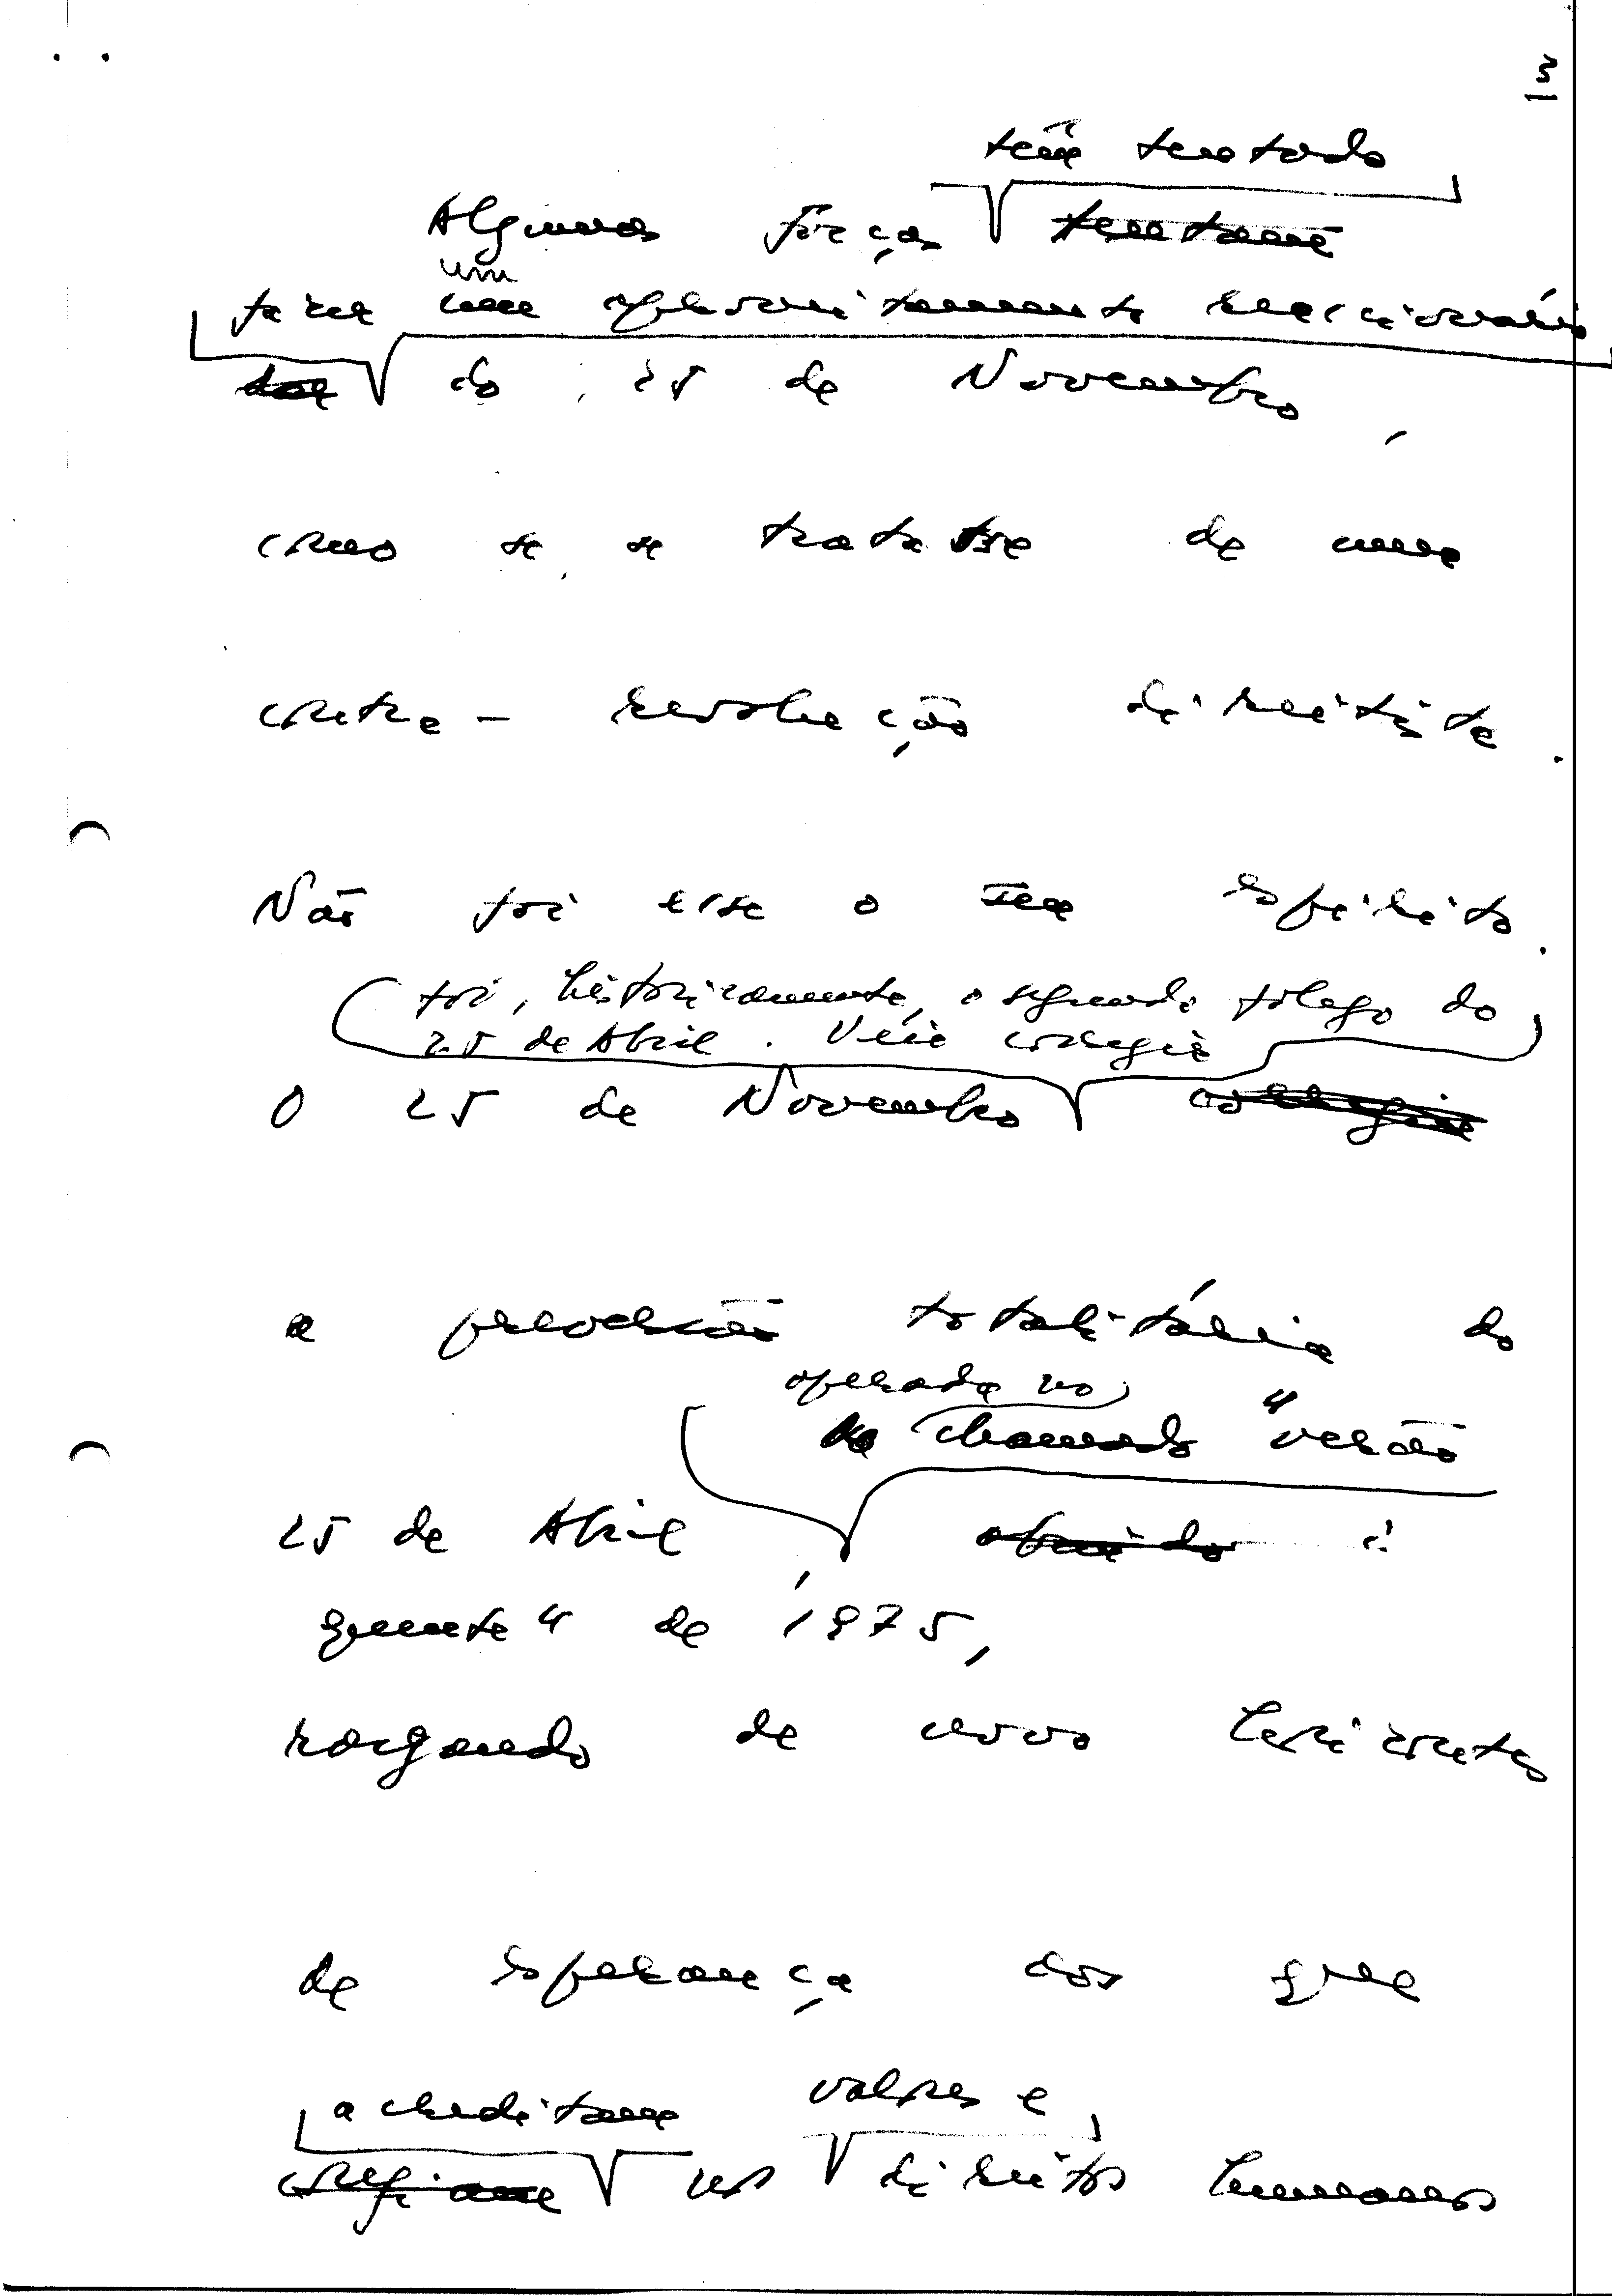 3
têm tentado
Algumas forças tentam
um
fazer um aproveitamento reaccionário
do 25 de Novembro,
como se se tratasse de uma
contra-revolução direitista.
Não foi esse o seu espírito.
foi, historicamente, o segundo fôlego do
25 de Abril. Veio corrigir
O 25 de Novembro corrigir
a perversão totalitária do
operada no
chamado "verão
25 de Abril
quente" de 1975,
rasgando de novo horizontes
de esperança aos que
acreditam valores e
confiam nos direitos humanos